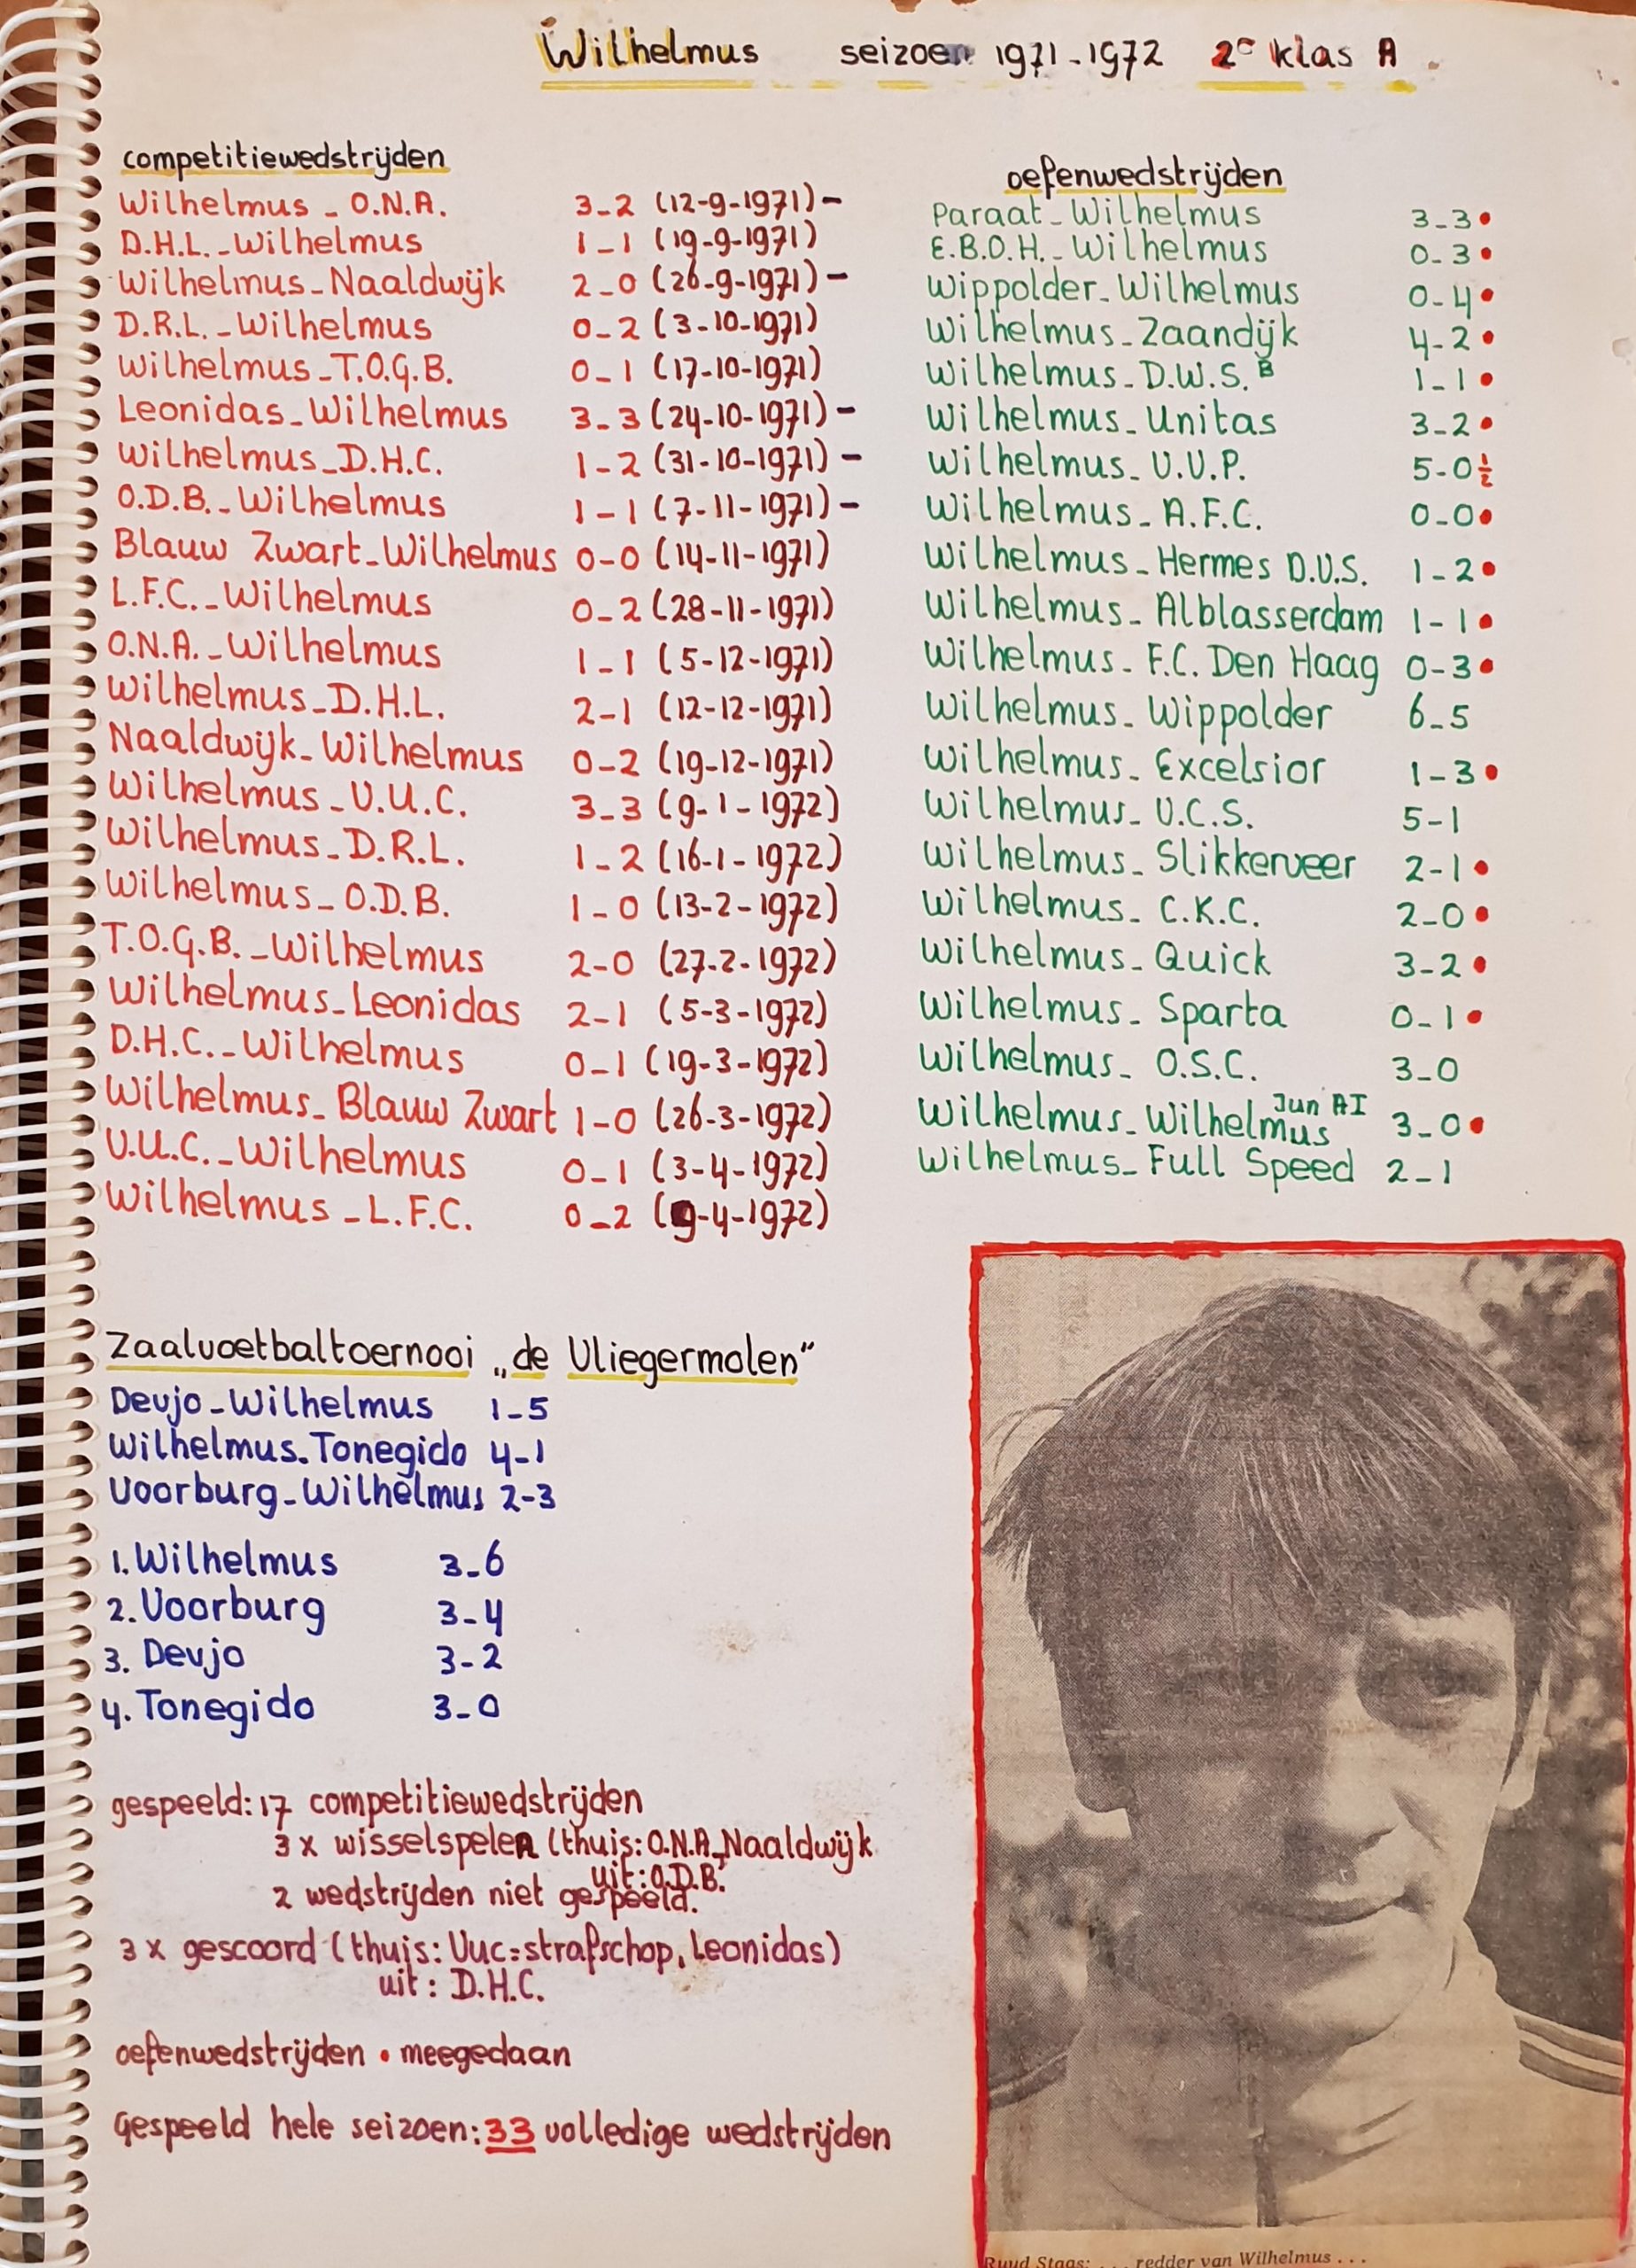 Wilhelmus seizoen 1971-1972 2e klas A.
competitiewedstrijden
Wilhelmus - O.N.A. 3-2 (12-9-1971) -
D.H.L. - Wilhelmus 1-1 (19-9-1971)
Wilhelmus - Naaldwijk 2-0 (26-9-1971) -
D.R.L. - Wilhelmus 0-2 (3-10-1971)
Wilhelmus - T.O.G.B. 0-1 (17-10-1971)
Leonidas - Wilhelmus 3-3 (24-10-1971) -
Wilhelmus - D.H.C. 1-2 (31-10-1971) -
O.D.B. - Wilhelmus 1-1 (7-11-1971) -
Blauw Zwart - Wilhelmus 0-0 (14-11-1971)
L.F.C. - Wilhelmus 0-2 (28-11-1971)
O.N.A. - Wilhelmus 1-1 (5-12-1971)
Wilhelmus - D.H.L. 2-1 (12-12-1971)
Naaldwijk - Wilhelmus 0-2 (19-12-1971)
Wilhelmus - V.U.C. 3-3 (9-1-1972)
Wilhelmus - D.R.L. 1-2 (16-1-1972)
Wilhelmus - O.D.B. 1-0 (13-2-1972)
T.O.G.B. - Wilhelmus 2-0 (27-2-1972)
Wilhelmus - Leonidas 2-1 (5-3-1972)
D.H.C. - Wilhelmus 0-1 (19-3-1972)
Wilhelmus - Blauw Zwart 1-0 (26-3-1972)
V.U.C. - Wilhelmus 0-1 (3-4-1972)
Wilhelmus - L.F.C. 0-2 (9-4-1972)
oefenwedstrijden
Paraat - Wilhelmus 3-3 •
E.B.O.H. - Wilhelmus 0-3 •
Wippolder - Wilhelmus 0-4 •
Wilhelmus - Zaandijk 4-2 •
Wilhelmus - D.W.S. B 1-1 •
Wilhelmus - Unitas 3-2 •
Wilhelmus - V.V.P. 5-0 ½
Wilhelmus - A.F.C. 0-0 •
Wilhelmus - Hermes D.V.S. 1-2 •
Wilhelmus - Alblasserdam 1-1 •
Wilhelmus - F.C. Den Haag 0-3 •
Wilhelmus - Wippolder 6-5
Wilhelmus - Excelsior 1-3 •
Wilhelmus - V.C.S. 5-1
Wilhelmus - Slikkerveer 2-1 •
Wilhelmus - C.K.C. 2-0 •
Wilhelmus - Quick 3-2 •
Wilhelmus - Sparta 0-1 •
Wilhelmus - O.S.C. 3-0
Wilhelmus - Wilhelmus Jun AI 3-0 •
Wilhelmus - Full Speed 2-1
Zaalvoetbaltoernooi „de Vliegermolen"
Devjo - Wilhelmus 1-5
Wilhelmus - Tonegido 4-1
Voorburg - Wilhelmus 2-3
1. Wilhelmus 3-6
2. Voorburg 3-4
3. Devjo 3-2
4. Tonegido 3-0
gespeeld: 17 competitiewedstrijden
3 x wisselspeler (thuis: O.N.A., Naaldwijk
uit: O.D.B.
2 wedstrijden niet gespeeld.
3 x gescoord (thuis: Vuc = strafschop, Leonidas)
uit: D.H.C.
oefenwedstrijden • meegedaan
Gespeeld hele seizoen: 33 volledige wedstrijden
Ruud Staas: . . . redder van Wilhelmus . . .